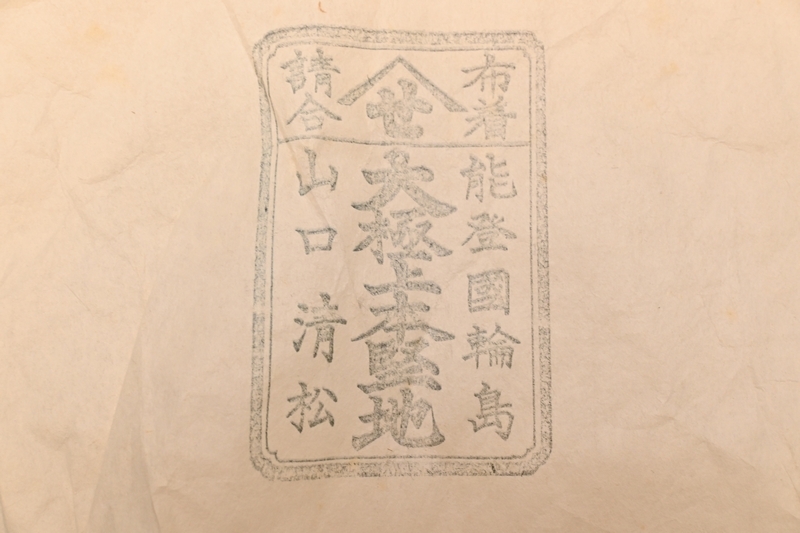 布着
廿
請合
能登國輪島
大極上本堅地
山口清松